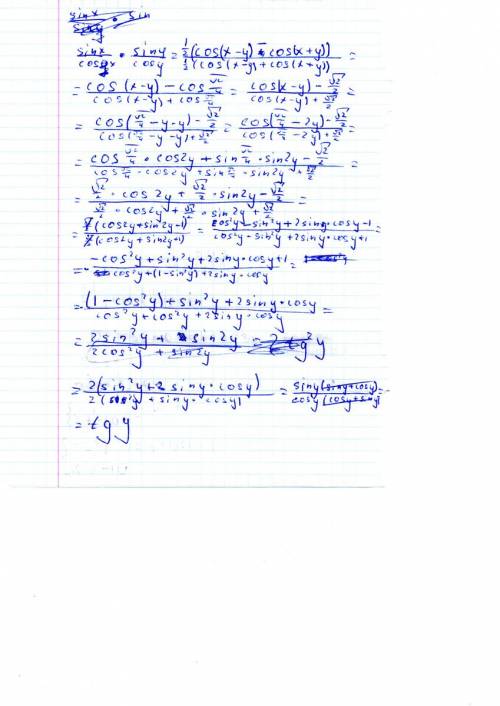 sinx/siny · sin
sinx/cosx · siny/cosy = ½(cos(x-y) - cos(x+y)) / ½(cos(x-y) + cos(x+y)) =
= cos(x-y) - cos π/4 / cos(x-y) + cos π/4 = cos(x-y) - √2/2 / cos(x-y) + √2/2 =
= cos(π/4 - y - y) - √2/2 / cos(π/4 - y - y) + √2/2 = cos(π/4 - 2y) - √2/2 / cos(π/4 - 2y) + √2/2 =
= cos π/4 · cos2y + sin π/4 · sin2y - √2/2 / cos π/4 · cos2y + sin π/4 · sin2y + √2/2 =
= √2/2 · cos2y + √2/2 · sin2y - √2/2 / √2/2 · cos2y + √2/2 · sin2y + √2/2 =
= (cos2y + sin2y - 1) / (cos2y + sin2y + 1) = cos²y - sin²y + 2siny · cosy - 1 / cos²y - sin²y + 2siny · cosy + 1 =
= -cos²y + sin²y + 2siny · cosy + 1 / cos²y + (1 - sin²y) + 2siny · cosy =
= (1 - cos²y) + sin²y + 2siny · cosy / cos²y + cos²y + 2siny · cosy =
= 2sin²y + sin2y / 2cos²y + sin2y = 2tg²y
= 2(sin²y + 2 siny · cosy) / 2(cos²y + siny · cosy) = siny(siny + cosy) / cosy(cosy + siny) =
= tg y